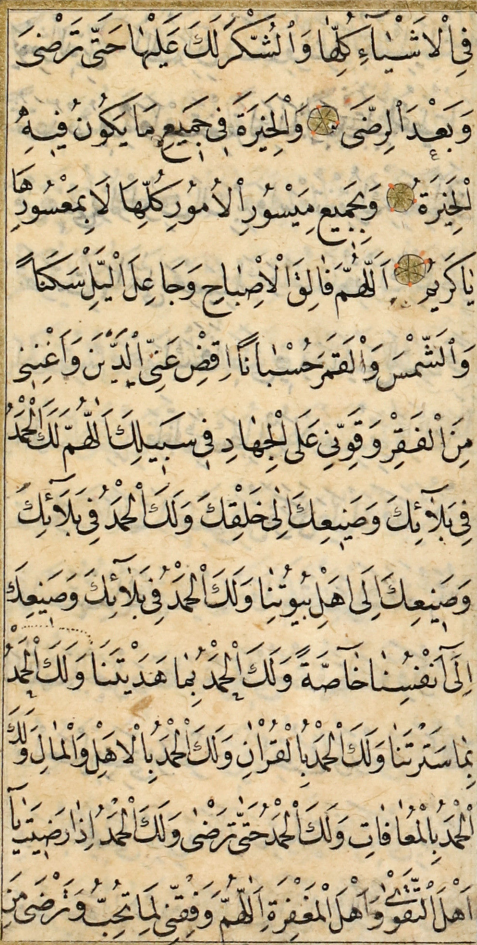 فِي الْاَشْيَآءِ كُلِّهَا وَالشُّكْرَ لَكَ عَلَيْهَا حَتّٰى تَرْضٰى
وَبَعْدَ الرِّضٰى وَالْخِيَرَةَ فِي جَمِيعِ مَا يَكُونُ فِيهِ
الْخِيَرَةُ وَبِجَمِيعِ مَيْسُورِ الْاُمُورِ كُلِّهَا لَا بِمَعْسُورِهَا
يَا كَرِيمُ اَللّٰهُمَّ فَالِقَ الْاِصْبَاحِ وَجَاعِلَ الَّيْلِ سَكَنًا
وَالشَّمْسَ وَالْقَمَرَ حُسْبَانًا اِقْضِ عَنِّي الدَّيْنَ وَاَغْنِنِي
مِنَ الْفَقْرِ وَقَوِّنِي عَلَى الْجِهَادِ فِي سَبِيلِكَ اَللّٰهُمَّ لَكَ الْحَمْدُ
فِي بَلَآئِكَ وَصَنِيعِكَ اِلٰى خَلْقِكَ وَلَكَ الْحَمْدُ فِي بَلَآئِكَ
وَصَنِيعِكَ اِلٰى اَهْلِ بُيُوتِنَا وَلَكَ الْحَمْدُ فِي بَلَآئِكَ وَصَنِيعِكَ
اِلٰٓى اَنْفُسِنَا خَآصَّةً وَلَكَ الْحَمْدُ بِمَا هَدَيْتَنَا وَلَكَ الْحَمْدُ
بِمَا سَتَرْتَنَا وَلَكَ الْحَمْدُ بِالْقُرْاٰنِ وَلَكَ الْحَمْدُ بِالْاَهْلِ وَالْمَالِ وَلَكَ
الْحَمْدُ بِالْمُعَافَاتِ وَلَكَ الْحَمْدُ حَتّٰى تَرْضٰى وَلَكَ الْحَمْدُ اِذَا رَضِيتَ يَآ
اَهْلَ التَّقْوٰى وَاَهْلَ الْمَغْفِرَةِ اَللّٰهُمَّ وَفِّقْنِي لِمَا تُحِبُّ وَتَرْضٰى مِنَ